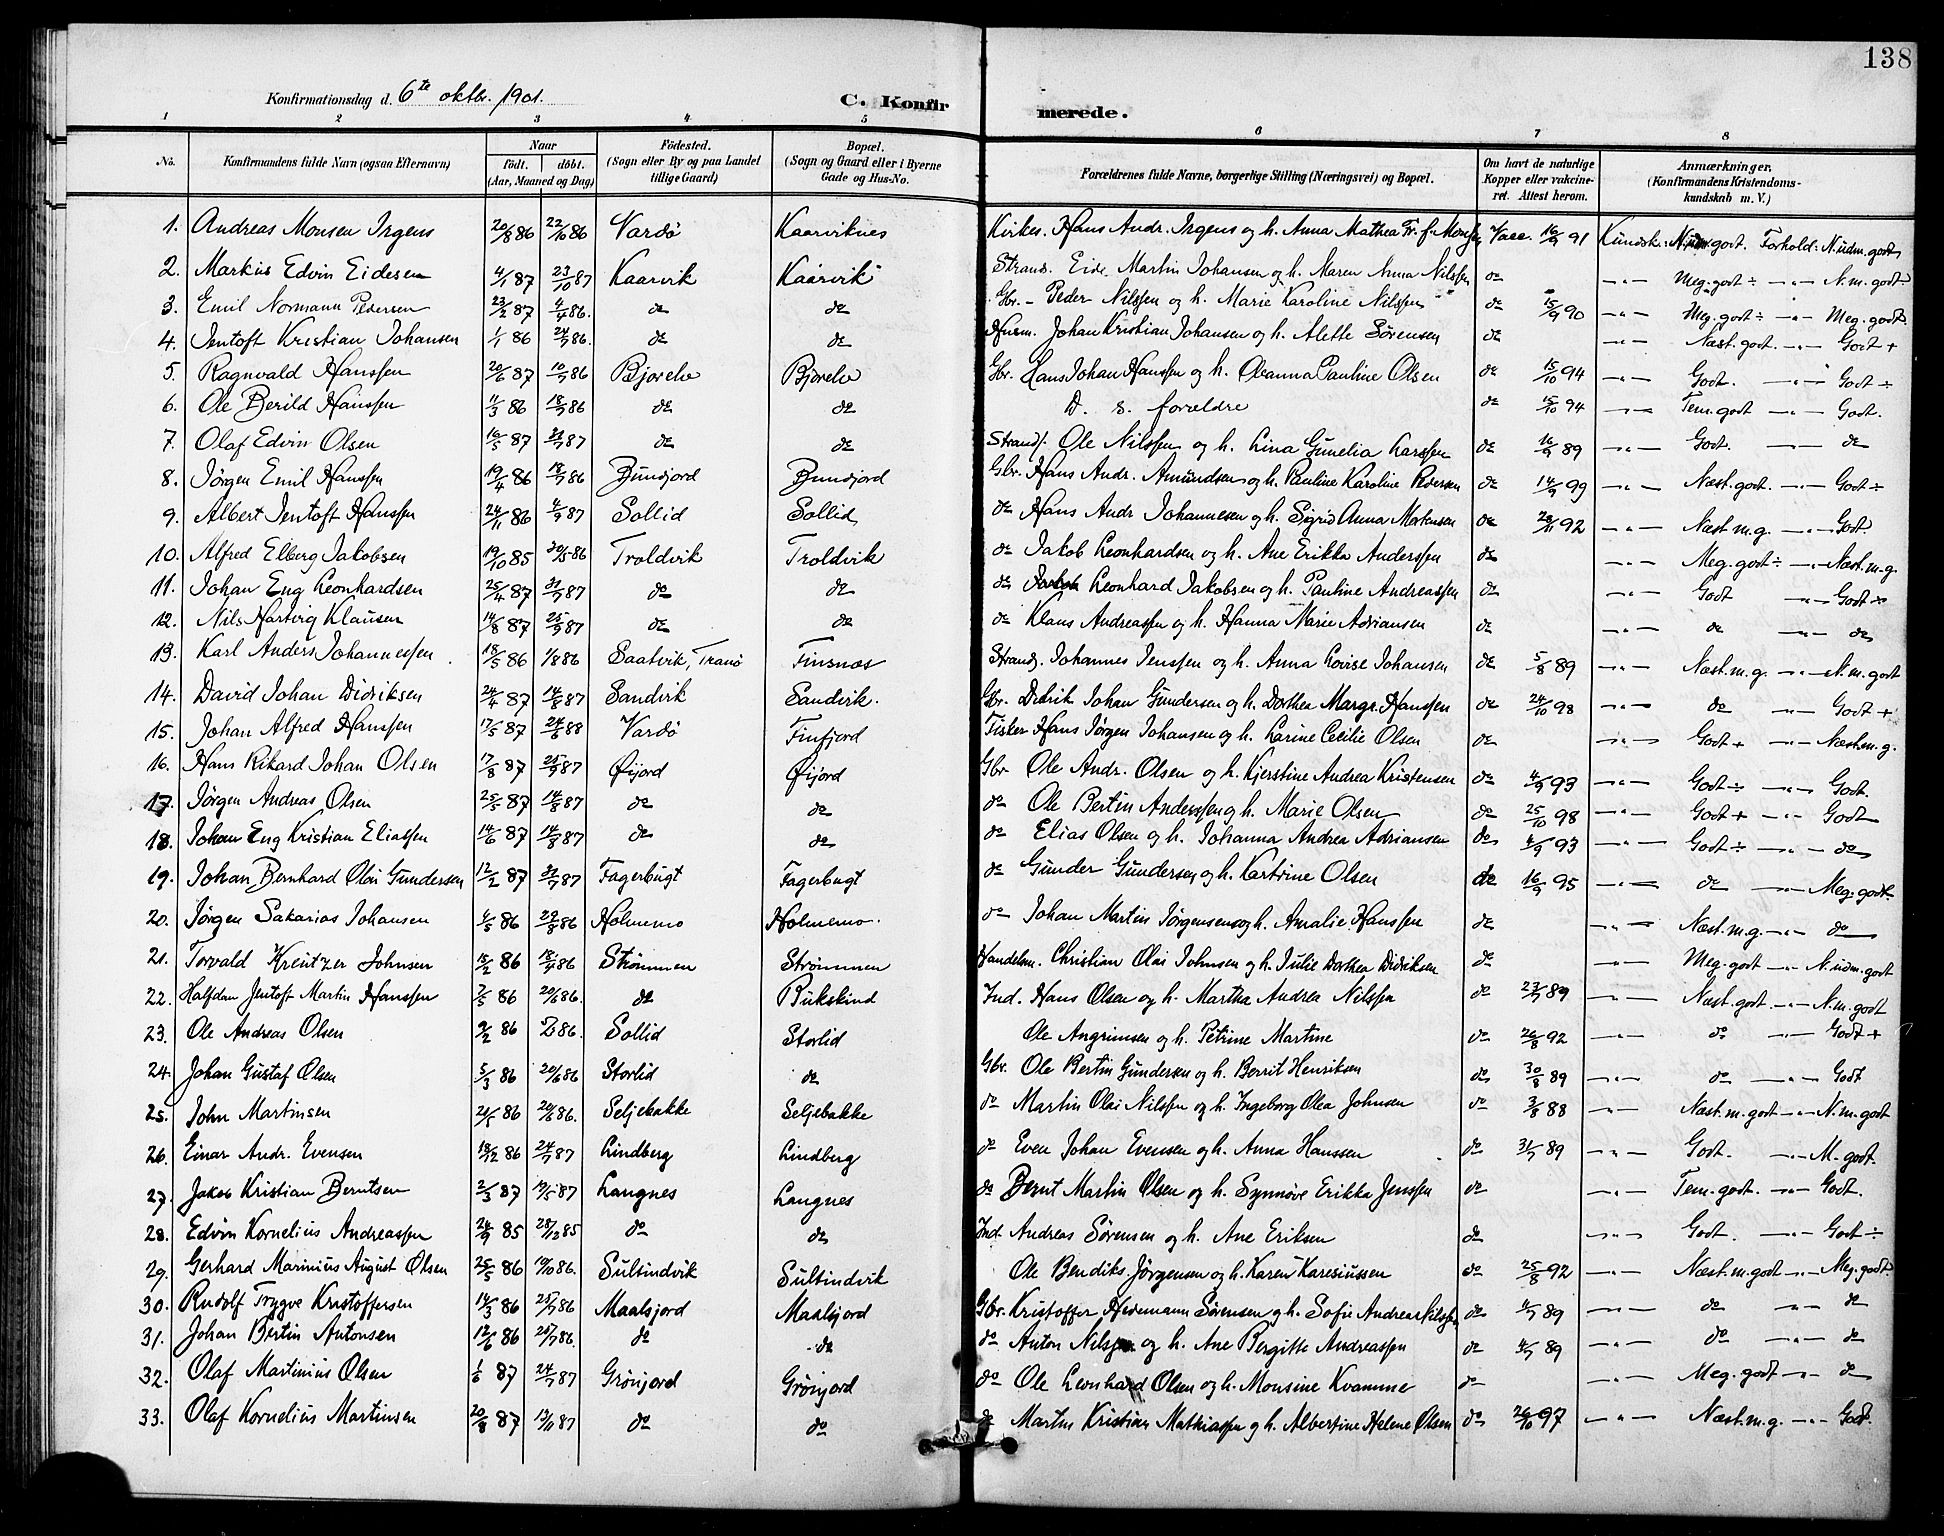 138
Konfirmationsdag d. 6te oktbr. 1901.
C. Konfirmerede.
1 2 3 4 5 6 7 8
No. Konfirmandens fulde Navn (ogsaa Efternavn) Naar født. døbt. (Aar, Maaned og Dag) Fødested. (Sogn eller By og paa Landet tillige Gaard) Bopæl. (Sogn og Gaard eller i Byerne Gade og Hus-No. Forældrenes fulde Navne, borgerlige Stilling (Næringsvei) og Bopæl. Om havt de naturlige Kopper eller vakcineret. Attest herom. Anmærkninger, (Konfirmandens Kristendomskundskab m. V.)
1. Andreas Monsen Irgens 20/8 86 22/10 86 Vardø Kaarviknes Kirkes. Hans Andr. Irgens og h. Anna Mathea Fr. f. Monsen Vacc. 16/9 91 Kundsk: N.udm.godt. Forhold: N.udm.godt
2. Markus Edvin Eidesen 4/1 87 23/10 87 Kaarvik Kaarvik Strands. Eide Martin Johansen og h. Maren Anna Nilssen do — " — Meg.godt ÷ — " — N.m.godt
3. Emil Normann Pedersen 23/2 87 4/4 86. do do Gbr. - Peder Nilssen og h. Marie Karoline Nilssen do 15/9 90 — " — Meg.godt ÷ — " — Meg.godt.
4. Jentoft Kristian Johansen 1/1 86 24/7 86. do do Husm. Johan Kristian Johansen og h. Alette Sørensen do — " — Næst.godt. — " — Godt +
5. Ragnvald Hanssen 20/6 87 10/7 86 Bjorelv Bjorelv Gbr. Hans Johan Hanssen og h. Oleanna Pauline Olsen do 15/10 94 — " — Godt. — " — Godt ÷
6. Ole Berild Hanssen 11/3 86 18/7 86 do do D. s. forældre do 15/10 94 — " — Tem.godt — " — Godt.
7. Olaf Edvin Olsen 16/5 87 31/7 87 do do Strands. Ole Nilssen og h. Lina Gunelia Larssen do 16/9 89 — " — Godt. — " — do
8. Jørgen Emil Hanssen 19/4 86 18/7 86 Bundjord Bundjord Gbr. Hans Andr. Amundsen og h. Pauline Karoline Pedersen do 14/9 99 — " — Næst.godt. — " — Godt ÷
9. Albert Jentoft Hanssen 24/11 86 4/9 87 Sollid Sollid do Hans Andr Johannesen og h. Sigrid Anna Mortensen do 28/11 92 — " — Næst.m.g. — " — Godt.
10. Alfred Elberg Jakobsen 19/10 85 30/5 86 Troldvik Troldvik do Jakob Leonhardsen og h. Ane Erikka Anderssen do — " — Meg.godt ÷ — " — Næst.m.g.
11. Johan Eng Leonhardsen 25/4 87 31/7 87 do do do Leonhard Jakobsen og h. Pauline Andreassen do — " — Godt — " — Godt ÷
12. Nils Hartvig Klausen 14/8 87 25/9 87 do do do Klaus Andreassen og h. Hanna Marie Adriansen do — " — do — " — do
13. Karl Anders Johannessen. 18/5 86 1/8 86 Saatvik, Tranø Finsnæs Strands. Johannes Jenssen og h. Anna Lovise Johansen do 5/8 89 — " — Næst.m.g. — " — N.m.godt
14. David Johan Didriksen 24/4 87 14/8 87 Sandvik Sandvik. Gbr. Didrik Johan Gundersen og h. Dorthea Margr. Hanssen do 24/10 98 — " — do — " — Godt +
15. Johan Alfred Hanssen 17/5 87 24/6 88 Vardø Finfjord Fisker Hans Jørgen Johansen og h. Larine Cecilie Olsen do — " — Godt + — " — Næst.m.g.
16. Hans Rikard Johan Olsen 17/8 87 25/9 87 Øijord Øijord Gbr Ole Andr. Olsen og h. Kjerstine Andrea Kristensen do 4/9 93 — " — Godt ÷ — " — Godt.
17. Jørgen Andreas Olsen 25/5 87 14/8 87 do do do Ole Bertin Anderssen og h. Marie Olsen do 25/10 98 — " — Godt + — " — Godt
18. Johan Eng Kristian Eliassen 14/6 87 14/8 87 do do do Elias Olsen og h. Johanna Andrea Adriansen do 4/9 93 — " — Godt ÷ — " — do
19. Johan Bernhard Olai Gundersen 12/2 87 31/7 87 Fagerbugt Fagerbugt do Gunder Gundersen og h. Kartrine Olsen do 16/9 95 — " — do — " — Meg.godt
20. Jørgen Sakarias Johansen 4/5 86 29/8 86 Holmemo Holmemo. do Johan Martin Jørgensen og h. Amalie Hanssen do — " — Næst.m.g. — " — do
21. Torvald Kreutzer Johnsen 15/2 86 18/4 86 Strømmen Strømmen Handelsm. Christian Olai Johnsen og h. Julie Dorthea Didriksen do — " — Meg.godt — " — N.udm.godt
22. Halfdan Jentoft Martin Hanssen 7/5 86 20/6 86. do Bukskind Ind. Hans Olsen og h. Martha Andrea Nilssen do 23/7 89 — " — Næst.godt. — " — N.m.godt
23. Ole Andreas Olsen 9/2 86 86. Sollid Storlid Ole Angrimsen og h. Petrine Martine do 26/8 92 — " — do — " — Godt +
24. Johan Gustaf Olsen 5/3 86 20/6 86 Storlid do Gbr. Ole Bertin Gundersen og h. Berrit Henriksen do 30/8 89 — " — do — " — Godt
25. John Martinsen 21/5 86 20/6 86. Seljebakke Seljebakke do Martin Olai Nilssen og h. Ingeborg Olea Johnsen do 3/8 88 — " — Næst.m.godt — " — N.m.godt
26. Einar Andr. Evensen 18/12 86 24/7 87 Lindberg Lindberg do Even Johan Evensen og h. Anna Hanssen do 31/7 89 — " — Godt. — " — M.godt.
27. Jakob Kristian Berntsen 2/3 87 19/5 87 Langnes Langnes do Bernt Martin Olsen og h. Synnøve Erikka Jenssen do — " — Tem.godt. — " — Godt.
28. Edvin Kornelius Andreassen 24/9 85 28/12 85 do do Ind. Andreas Sørensen og h. Ane Eriksen do — " — Godt. — " — Godt ÷
29. Gerhard Marinius August Olsen 25/5 86 10/10 86. Sultindvik Sultindvik Ole Bendiks Jørgensen og h. Karen Karesiussen do 25/8 92 — " — Næst.m.godt — " — Meg.godt
30. Rudolf Trygve Kristoffersen 14/3 86 25/7 86 Maalsjord Maalsjord Gbr. Kristoffer Hedemann Sørensen og h. Sofie Andrea Nilssen do 4/7 89 — " — do — " — do
31. Johan Bertin Antonsen 12/6 86 25/7 86. do do do Anton Nilssen og h. Ane Bergitte Andreassen do 4/7 89 — " — do — " — do
32. Olaf Martinius Olsen 1/6 87 24/7 87 Grønjord Grønjord do Ole Leonhard Olsen og h. Monsine Kvamme do — " — Meg.godt — " — do
33. Olaf Kornelius Martinsen 20/8 87 13/11 87 do do do Martin Kristian Mathiassen og h. Albertine Helene Olsen do 26/10 97 — " — Næst.m.g. — " — Godt.